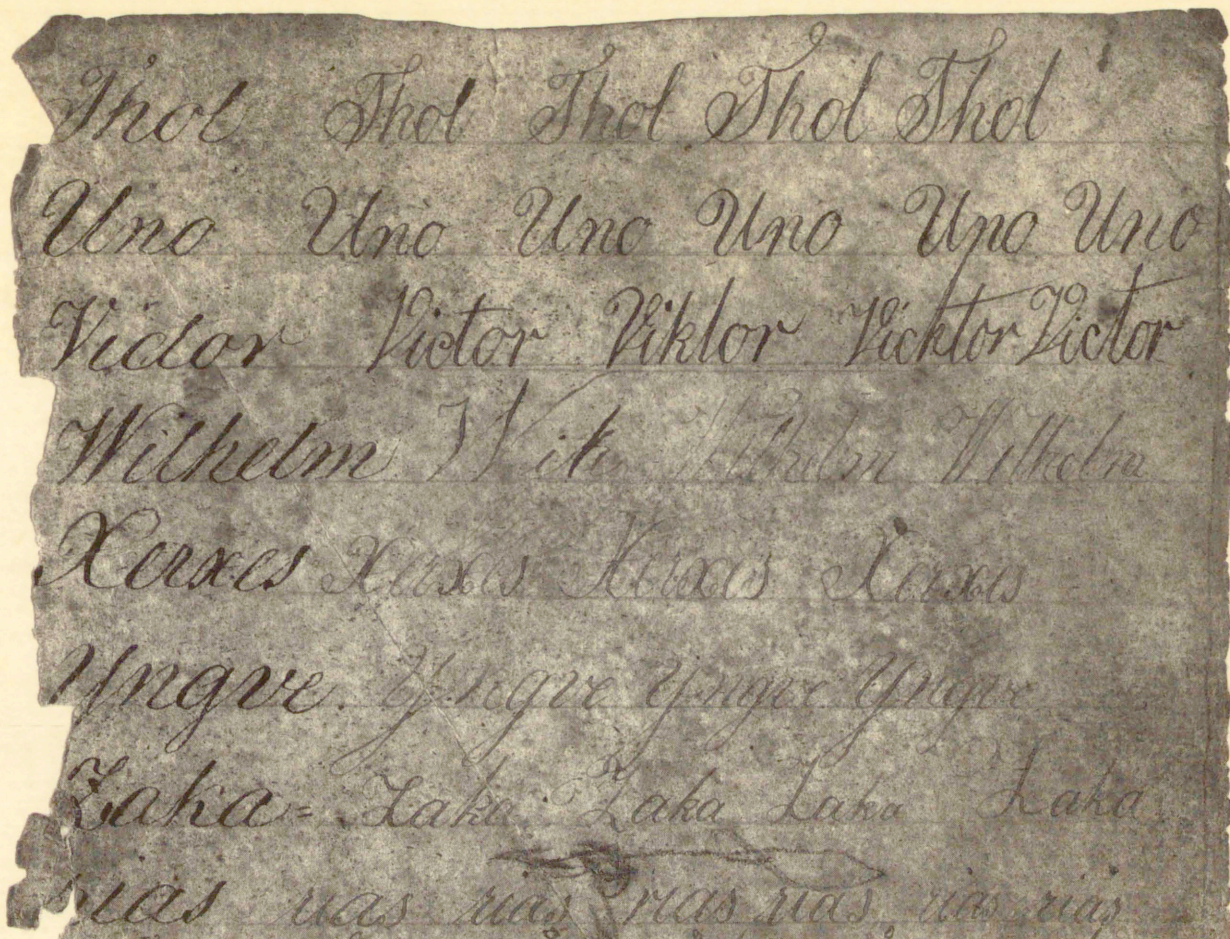 Thol Thol Thol Thol Thol
Uno Uno Uno Uno Uno Uno
Victor Victor Viktor Vicktor Victor
Wilhelm Wilhelm Wilhelm
Xerxes Xerxes Xerxes Xerxes
Yngve. Yngve Yngve Yngve
Zaka= Zaka Zaka Zaka Zaka
rias rias rias rias rias rias rias